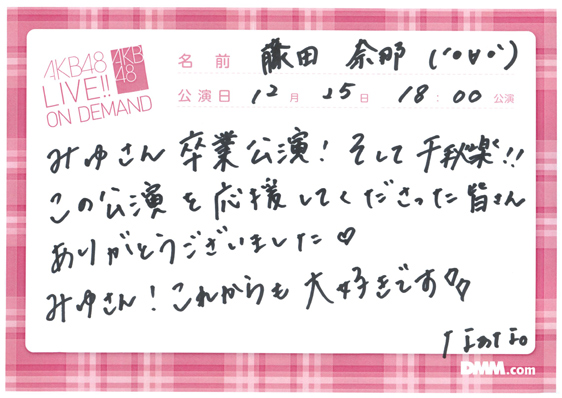 AKB48
LIVE!!
ON DEMAND
AKB48
名前 藤田 奈那 (*°∀°*)
公演日 12月 25日 18:00 公演
みゆさん 卒業公演! そして 千秋楽!!
この公演を応援してくださった皆さん
ありがとうございました♡
みゆさん!これからも 大好きです♡♡
なぁな。
DMM.com